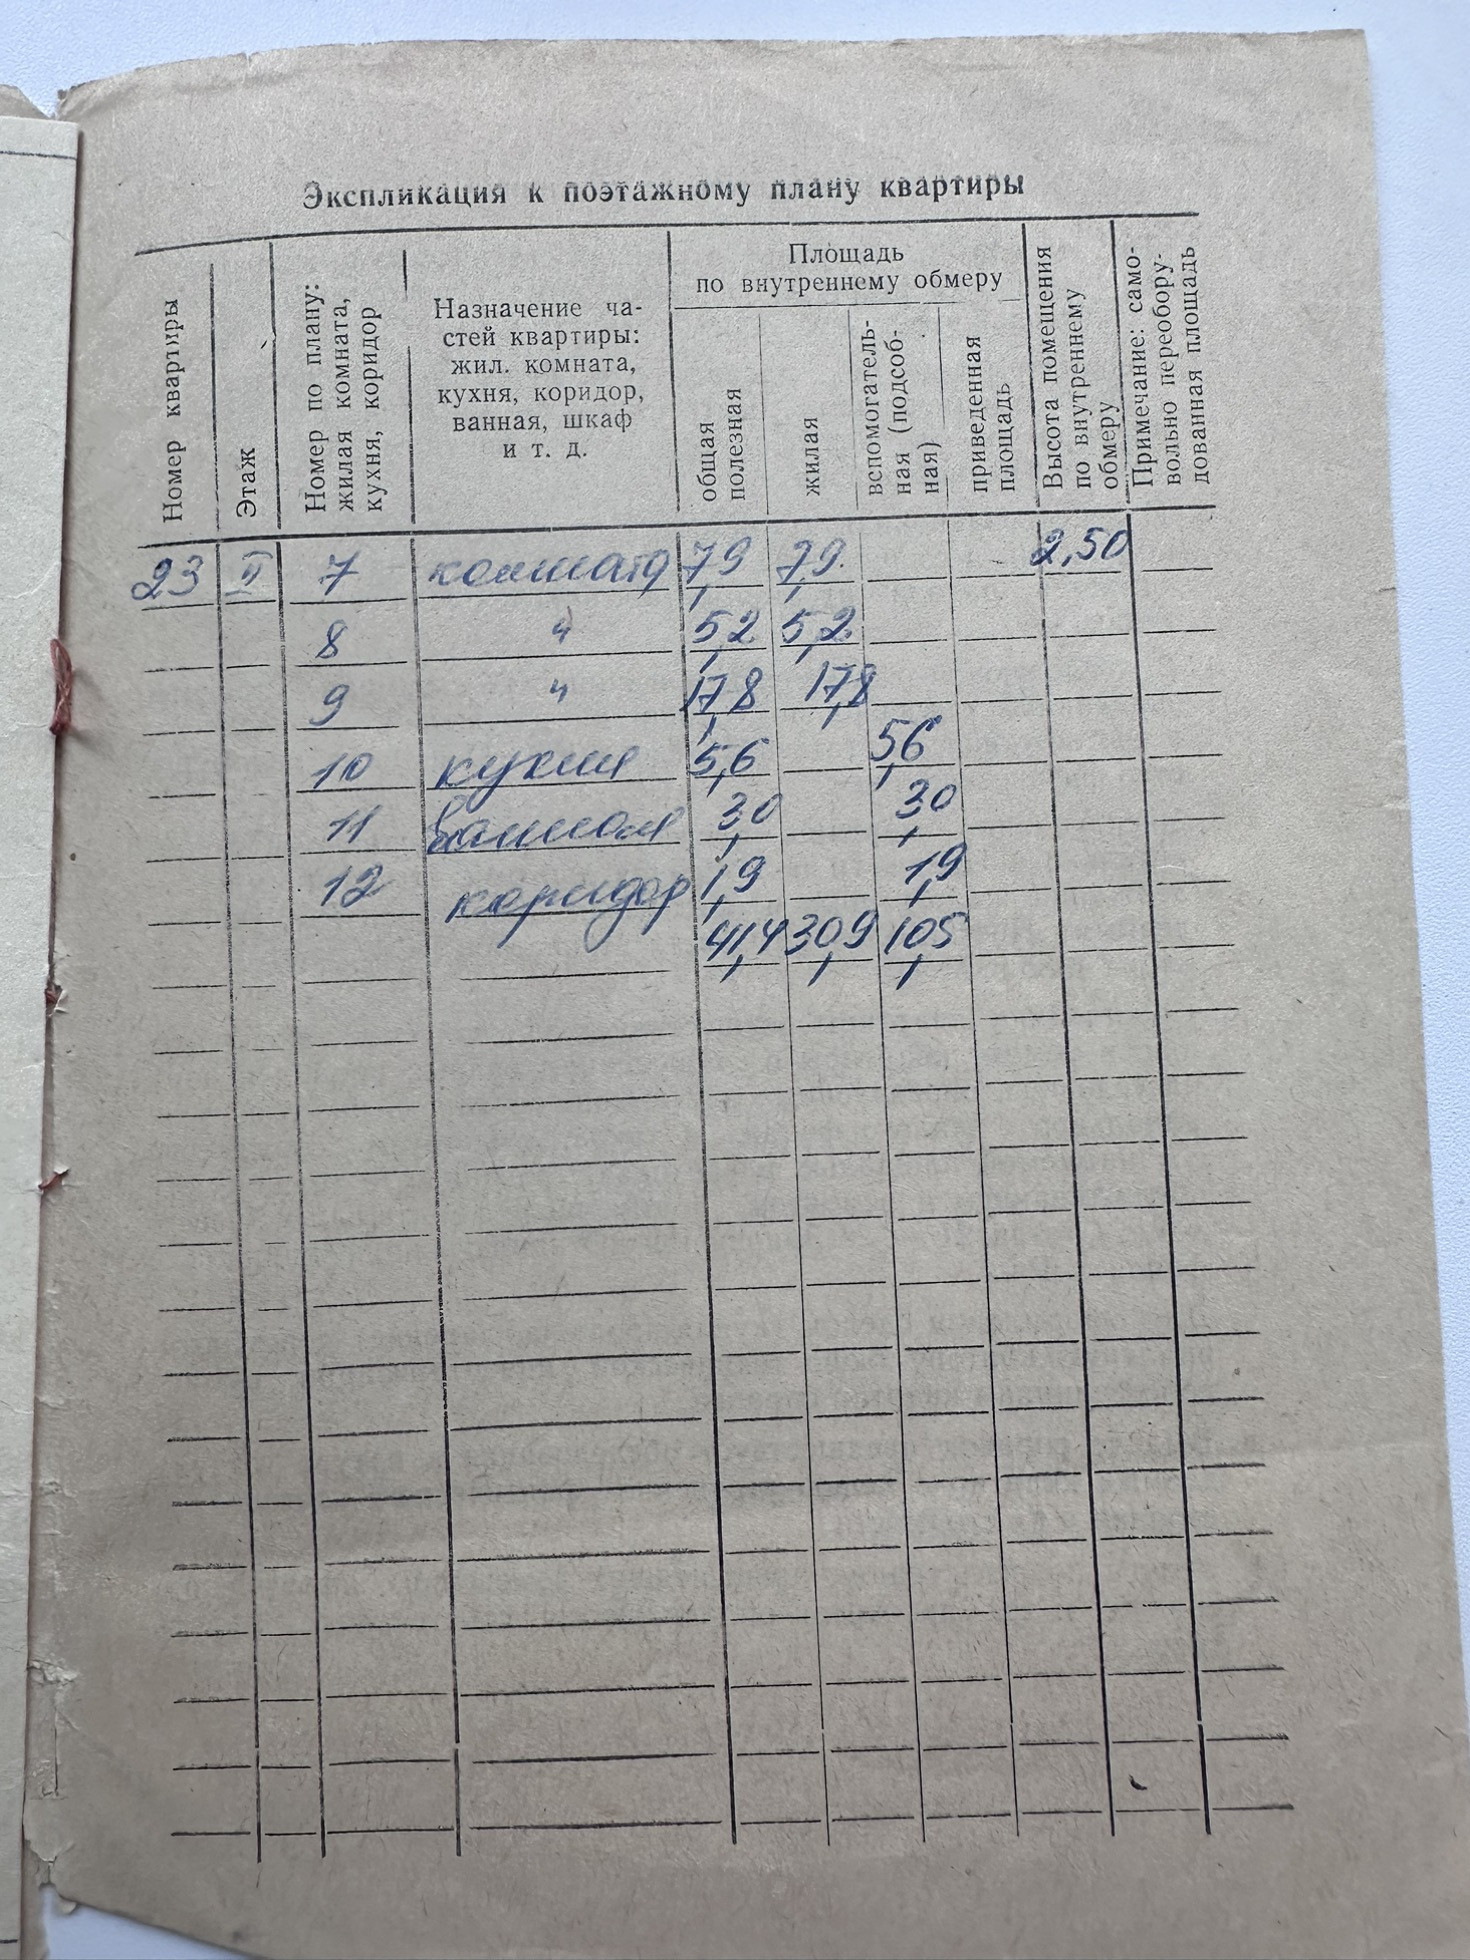 Экспликация к поэтажному плану квартиры
Номер квартиры
Этаж
Номер по плану:
жилая комната,
кухня, коридор
Назначение ча-
стей квартиры:
жил. комната,
кухня, коридор,
ванная, шкаф
и т. д.
Площадь
по внутреннему обмеру
общая
полезная
жилая
вспомогатель-
ная (подсоб-
ная)
приведенная
площадь
Высота помещения
по внутреннему
обмеру
Примечание: само-
вольно переобору-
дованная площадь
23 II 7 комната 7,9 7,9 2,50
8 " 5,2 5,2
9 " 17,8 17,8
10 кухня 5,6 5,6
11 ванная 3,0 3,0
12 коридор 1,9 1,9
41,4 30,9 10,5